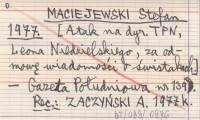 MACIEJEWSKI Stefan
1977. [Atak na dyr. TPN,
Leona Niedzielskiego, za od-
mowę wiadomości o świstakach]
— Gazeta Południowa nr 139
Rec.: ZACZYŃSKI A. 1977 k.